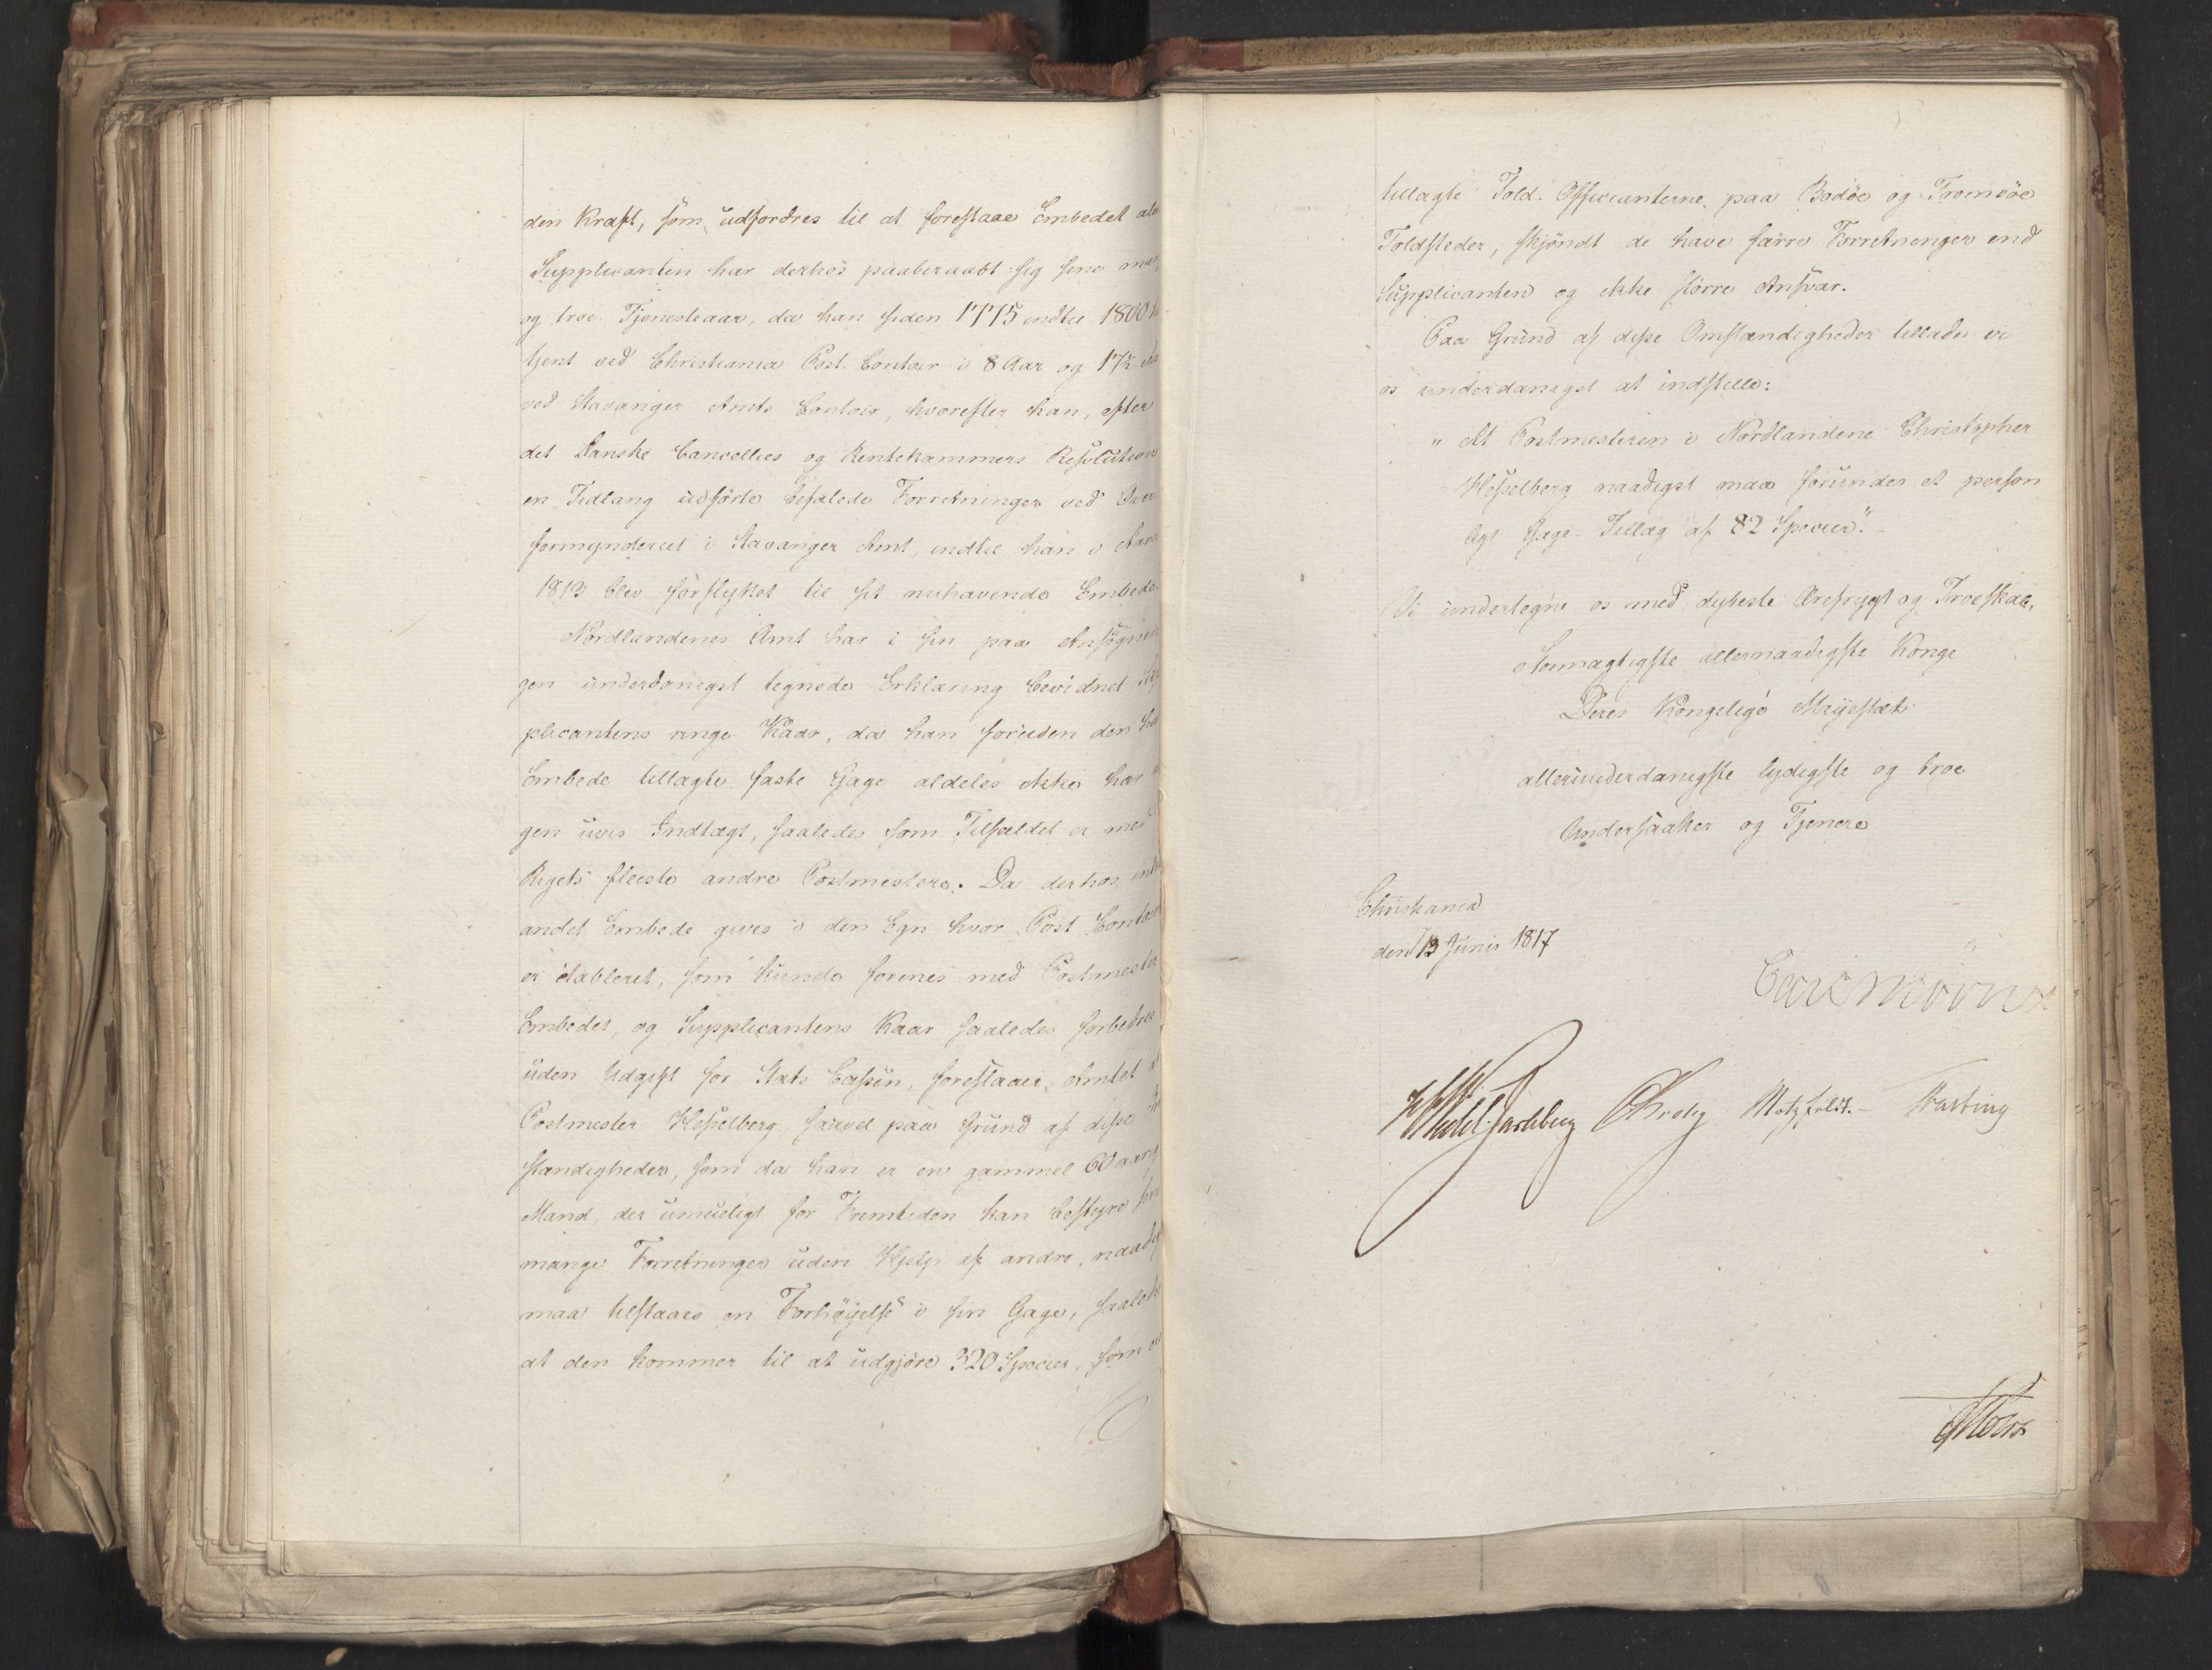 den Kraft, som udfordres til at forestaae Embedet
Supplicanten har derhos paaberaabt sig sine
og troe Tjenesteaar, da han siden 1775 indtil 1800
tjent ved Christiania Post-Contoir i 8 Aar og 17½
ved Stavanger Amts Contoir, hvorefter han, efter
det Danske Cancellies og Rentekammers Resolution
en Tidlang udførte befalede Forretninger ved Over
formynderiet i Stavanger Amt, indtil han i Aaret
1813 blev forflyttet til sit nuhavende Embede.
Nordlandenes Amt har i sin paa Ansøgnin
gen underdanigst tegnede Erklæring bevidnet Sup
plicantens ringe Kaar, da han foruden den
Embede tillagte faste Gage aldeles ikke har
gen uvis Indtægt, saaledes som Tilfældet er med
Rigets fleeste andre Postmestere. Da derhos intet
andet Embede gives i den Egn hvor Post Contoir
er etableret, som kunde forenes med Postmester
Embedet, og Supplicantens Kaar saaledes forbedres
uden Udgift for Stats Cassen, foreslaaer Amtet at
Postmester Hesselberg, saavel paa Grund af disse
stændigheder, som da han er en gammel 60 aarig
Mand, der umueligt for Fremtiden kan bestyre
mange Forretninger uden Hjelp af andre, naadigst
maa tilstaaes en Forhøyelse i sin Gage, saaledes
at den kommer til at udgjøre 320 Specier, som
tillagte Told-Officianterne paa Bodøe og Tromsøe
Toldsteder, skjøndt de have færre Forretninger end
Supplicanten og ikke større Ansvar.
Paa Grund af disse Omstændigheder tillade vi
os underdanigst at indstille:
"At Postmesteren i Nordlandene Christopher
Hesselberg naadigst maa forundes et person
ligt Gage-Tillæg af 82 Specier".
Vi undertegne os med dybeste Ærefrygt og Troeskab,
Stormægtigste allernaadigste Konge
Deres Kongelige Majestæts
allerunderdanigste lydigste og troe
Undersaatter og Tjenere
Christiania
den 13 Junii 1817
Carl Mörner
Wedel Jarlsberg Krohg Motzfeldt. Fasting